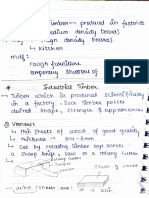 Timber → produced in factories
medium density board)
high density board)
↳ kitchen
mdf:
rough furniture
temporary structures of
* Industrial Timber
→ Timber which is produced scientifically
in a factory. Such timber posses
desired shape, strength & appearance.
① Veneers
→ thin sheets of wood of good quality
→ thickness → 0.4 - 6mm
→ Got by rotating timber logs across
a sharp knife, saw or a rotary cutter
→ dried (sheets are) in a kiln